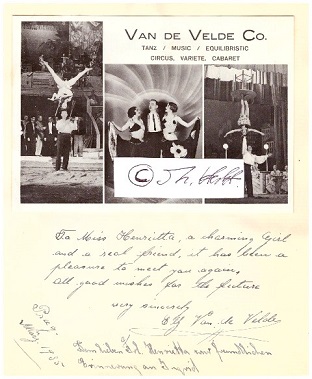 VAN DE VELDE CO.
TANZ / MUSIC / EQUILIBRISTIC
CIRCUS, VARIETE, CABARET
To Miss Henrietta, a charming Girl
and a real friend, it has been a
pleasure to meet you again,
All good wishes for the future
very sincerely
Van de Velde
Prag
May 1935
Henrietta zur freundlichen
Erinnerung an